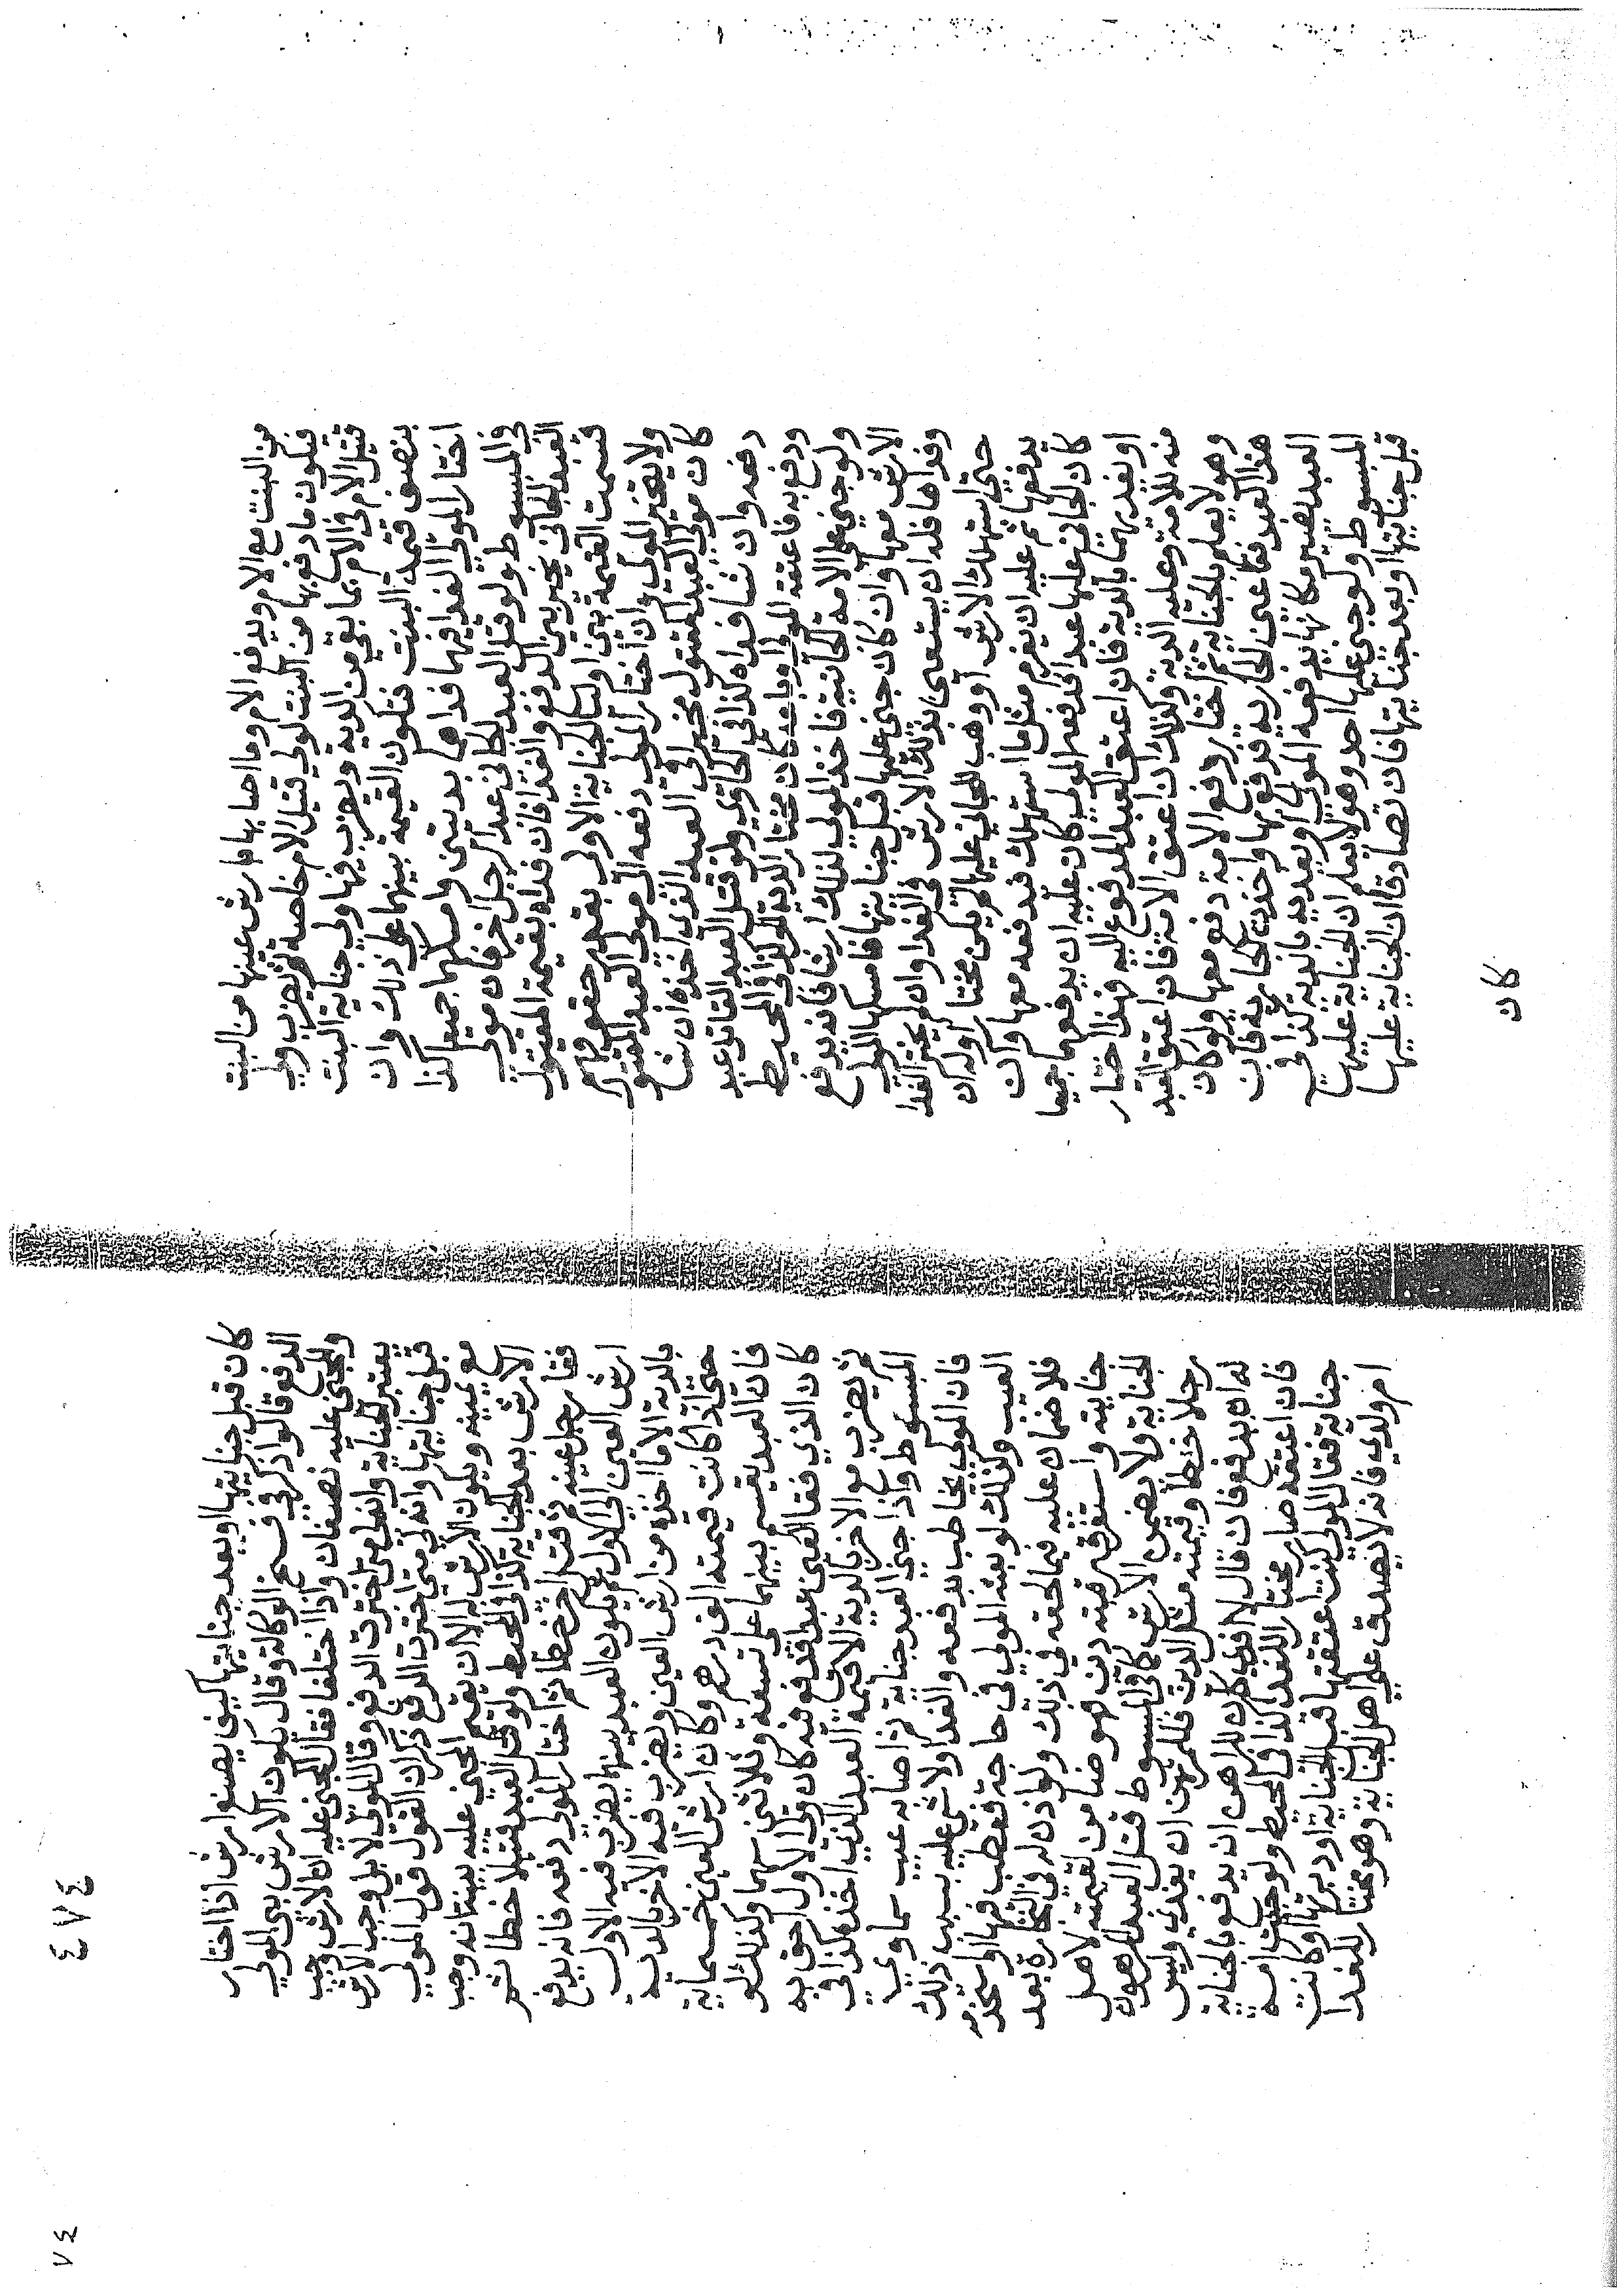 من البنت مع الام ويدفع الام وما اصابها بارش عينها من البنت
فيكون ما دفع بها من البنت لولي قتيل الام خاصة ثم يضرب ولي
قتيل الام في الام بما بقي من الدية ويضرب فيها ولي جناية البنت
بنصف قيمة البنت فتكون القيمة بينهما على ذلك وان
اختار المولى الفدا فيهما فداهما بديتين وامسكهما جميعا كذا
في المبسوط ولو قتل العبد الجاني عبدا لرجل اخر فان مولى
العبد الجاني يخير بين الدفع والفدا فان فداه بقيمة المقتول
قسمت القيمة بين اوليا الجناية الاولى بقدر حقوقهم
ولا يتخير المولى وان اختار المولى دفعه الى مولى العبد المقتول
كان مولى العبد المقتول مخيرا في العبد الذي اخذه ان شا
دفعه وان شا فداه كذا في الحاوي ولو قتل العبد القاتل عبد
ودفع به فاعتقه المولى او باعه كان مختارا للدية كذا في المحيط
ولو جني على الامة الجانية فاخذ المولى لذلك ارشا فانه يدفع
الارش معها وان كان جنى عليها قبل جنايتها فامسكها المولى
وفداها فله ان يستعين بذلك الارش في الفدا وان لم يختر الفدا
حتى استهلك الارش او وهب للجاني عليها لم يكن مختارا وله ان
يدفعها ثم عليه ان يغرم مثل ما استهلك فيدفعه معها وان
كان الجاني عليها عبدا فدفعه المولى كان عليه ان يدفعهما جميعا
او يفديهما بالدية فان اعتق العبد المدفوع اليه فهذا اختيار
منه للامة وعليه الدية وكذلك ان اعتق الامة فان اعتق العبد
وهو لا يعلم بالجناية ثم اختار دفع الامة دفع معها ولو كان
هذا العبد فقا عين الجارية فدفع بها واخذت الجارية فان
العبد يصير مكانها يدفعه المولى او يفديه بالدية كذا في
المبسوط ولو جنى عليها احد وهو لا يعلم ان الجناية عليها
قبل جنايتها او بعد جنايتها فان تصادقا ان الجناية عليها
كان
كان قبل جنايتها او بعد جنايتها كيف يصنع ارش اذا اختار
الدفع قالوا ذكر في نسخ الوكالة وقال يكون الارش بين المولى
والمجني عليه نصفان واذا اختلفا فقال المجني عليه ان الارش وجب
بعد الجناية واني متى اخترت الدفع وقال المولى لا بل وجب الارش
قبل جنايتها واني متى اخترت الدفع ذكر ان القول قول المولى
مع يمينه ويكون الارش له الا ان يقيم المجني عليه بينة انه وجب
الارش بعد الجناية كذا في المحيط ولو قتل العبد قتيلا خطا ثم
فقا رجل عينه ثم قتل اخر خطا ثم اختار المولى دفعه فانه يدفع
ارش العين الى الاول ثم يكون العبد بينهما يضرب فيه الاول
بالدية الا ما اخذ من ارش العين ويضرب فيه الاخر بالدية
حتى اذا كانت قيمته الف درهم وكان ارش العين خمسماية
فان العبد يقسم بينهما على تسعة وثلاثين سهما وكذلك لو
كان الذي فقا العين عبدا فدفع فيه كان ولي الاول احق به
ثم يضرب مع الاخر بالدية الا قيمة العبد الذي اخذه كذا في
المبسوط واذا جنى العبد جناية ثم اصابه عيب سماوي
فان المولى يخاطب بدفعه والفدا ولا شي عليه بسبب ذلك
العيب وكذلك لو بعثه المولى في حاجة فعطب فيها او استخدمه
فلا ضمان عليه فيما لحقه في ذلك ولو اذن له في التجارة بعد
جنايته واستغرق رقبته دين فهو ضامن لقيمته لاهل
الجناية ولا يضمن الارش كذا في المبسوط قتل العبد المرهون
رجلا خطا وقيمته مثل الدين فللمرتهن ان يفديه وليس
له ان يدفع فان قال لا افدي كان للراهن ان يدفع بالجناية
فان اعتقه صار مختارا للفدا كذا في المحيط ولو جنت امة
جناية فقال المولى كنت اعتقتها قبل الجناية او دبرتها او كانت
ام ولدي فانه لا يصدق على اهل الجناية وهو مختار للفدا
٤٧٤
٧٤